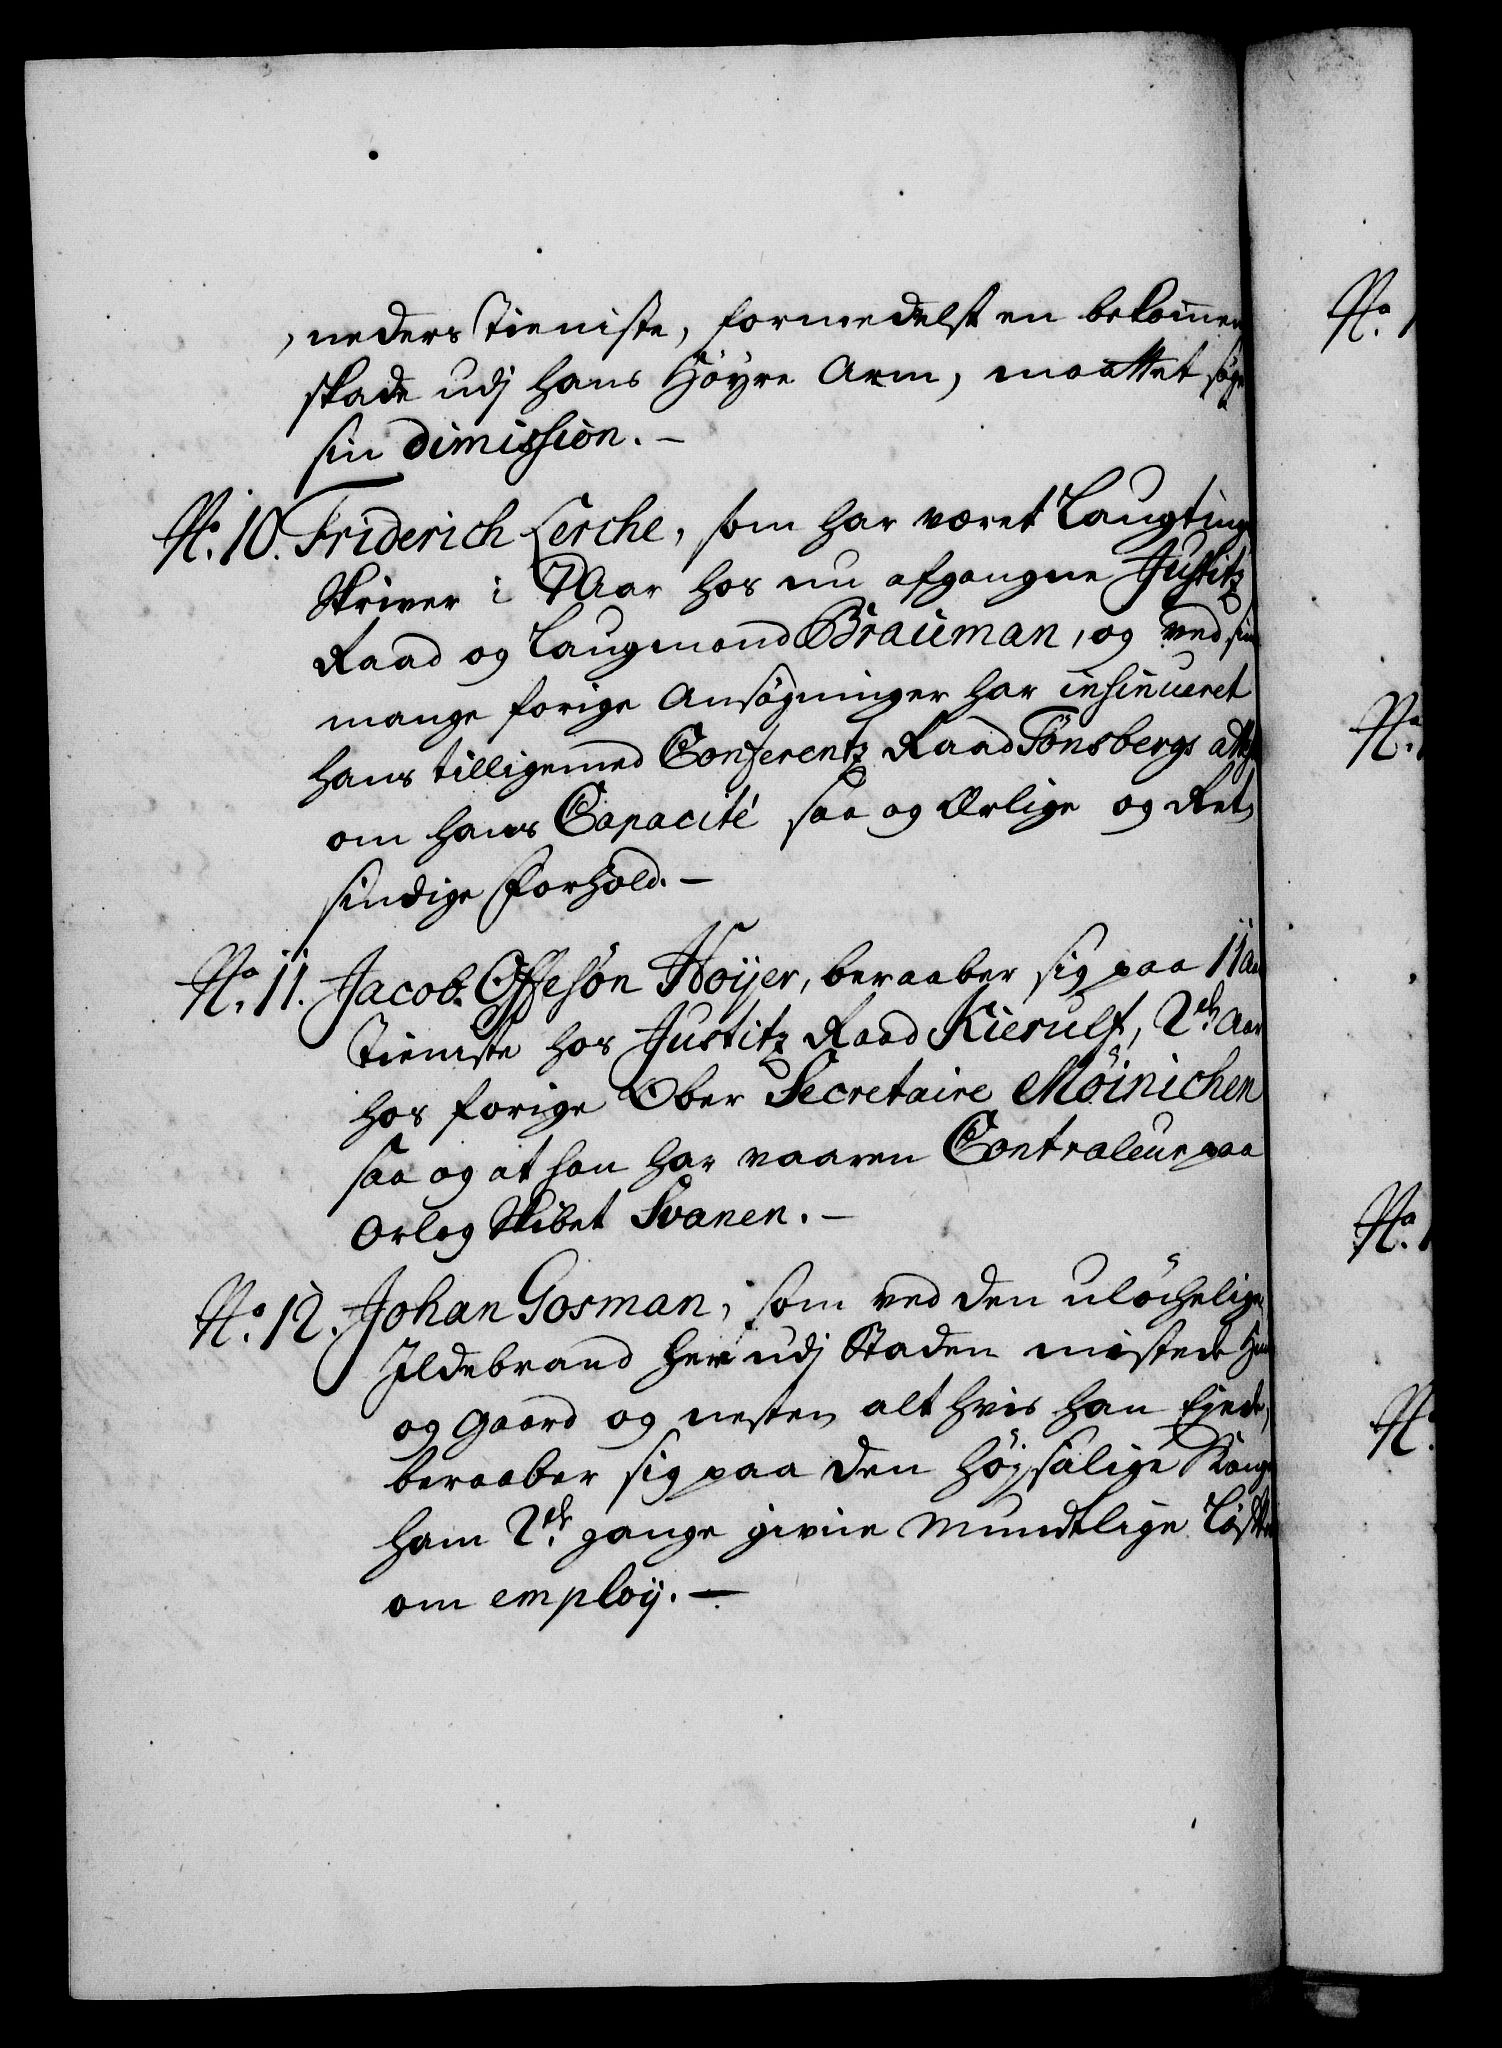 neders Tieniste, formedelst en bekommen
skade udj hans Höyre Arm, maattet søge
sin Dimission. –
No. 10. Friderich Lerche, som har været Laugtings
Skriver i 7 Aar hos nu afgangne Justitz
Raad og Laugmand Braüman, og ved sin
mange forige Ansøgninger har insinueret
hans tilligemed Conferentz Raad Tönsbergs
om hans Capacité saa og Ærlige og Ret
sindige Forhold. –
No. 11. Jacob Offesön Høyer, beraaber sig paa 11 Aar
Tieniste hos Justitz Raad Kierulf, 2de Aar
hos forige Ober Secretaire Möinichen
saa og at han har vaaren Contraleur paa
Orlog Skibet Svanen. –
No. 12. Johan Gosman, som ved den ulöchelige
Ildebrand her udj Staden mistede Huus
og Gaard og nesten alt hvis han Eyede,
beraaber sig paa den höjsalige Konge
ham 2de gange givne Mundtlige Løfte
om employ. –
No. 1
No.
No. 1
No.